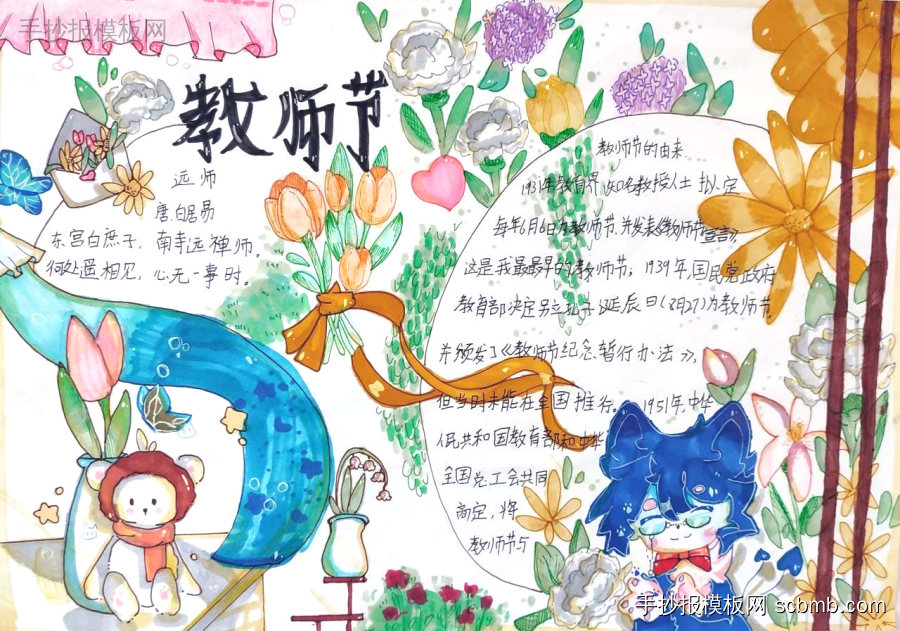 手抄报模板网
教师节
远师
唐.白居易
东宫白庶子，南寺远禅师。
何处遥相见，心无一事时。
教师节的由来
1931年教育界知名教授人士拟定
每年6月6日为教师节并发表《教师节宣言》，
这是我最最早的教师节；1939年，国民党政府
教育部决定另立孔子诞辰日（8月27）为教师节
并颁发了《教师节纪念暂行办法》，
但当时未能在全国推行。1951年，中华
人民共和国教育部和中华
全国总工会共同
商定，将
教师节与
手抄报模板网 scbmb.com